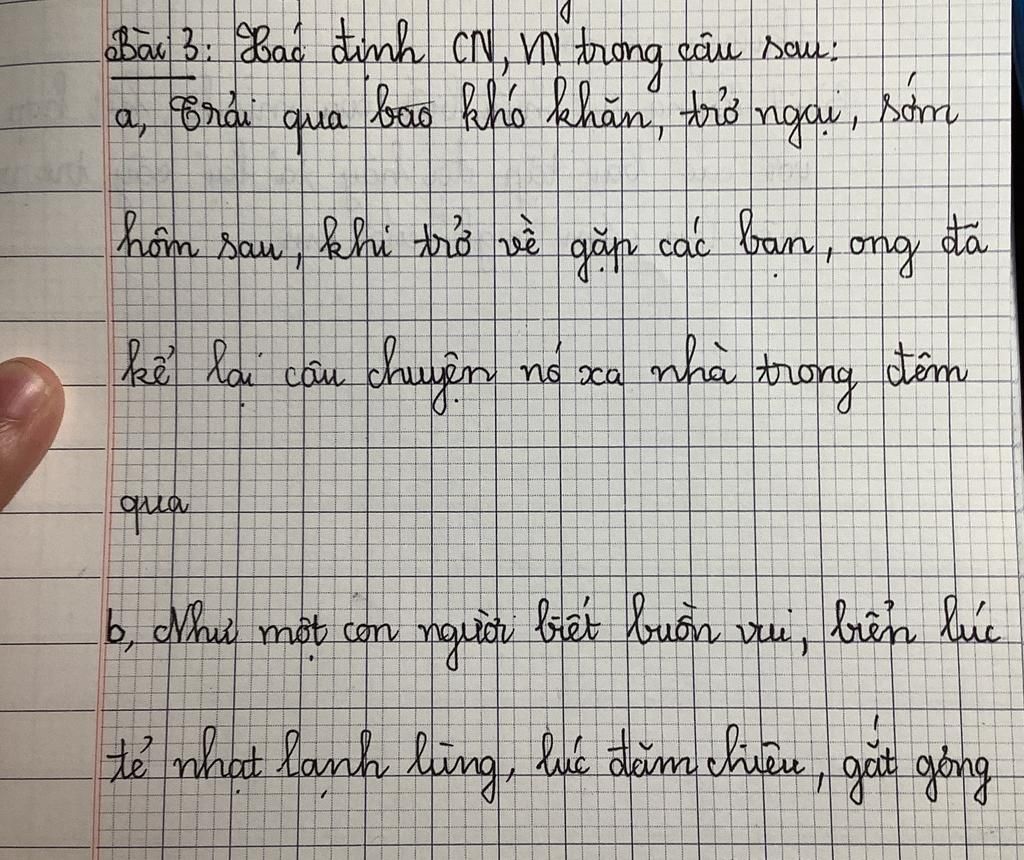 Bài 3: Xác định CN, VN trong câu sau:
a, Trải qua bao khó khăn, trở ngại, sớm
hôm sau, khi trở về gặp các bạn, ong đã
kể lại câu chuyện nó xa nhà trong đêm
qua
b, Như một con người biết buồn vui, biển lúc
tẻ nhạt lạnh lùng, lúc đăm chiêu, gắt gỏng